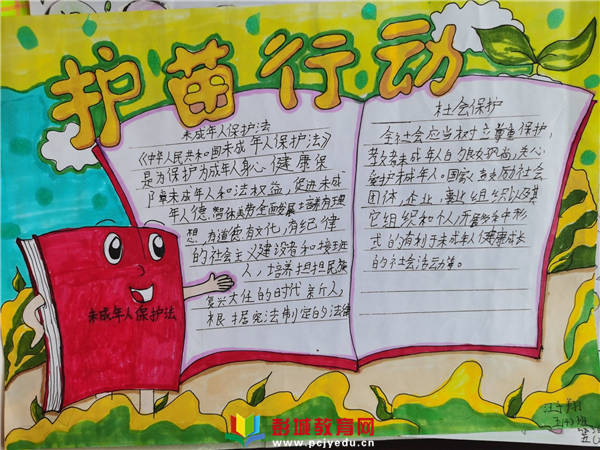 护苗行动
未成年人保护法
《中华人民共和国未成年人保护法》
是为保护为成年人身心健康保
障未成年人和法权益,促进未成
年人德智体美劳全面发展
想,有道德有文化,有纪律
的社会主义建设者和接班
人,培养担担民族
复兴大任的时代新人,
根据宪法制定的法律
社会保护
全社会应当树立尊重保护,
未成年人的良好风尚,关心
爱护未成年人。国家鼓励社会
团体,企业,事业组织以及其
它组织和个人,开展多种形
式的有利于未成年人健康成长
的社会活动等。
未成年人保护法
彭城教育网
www.pcjyedu.cn